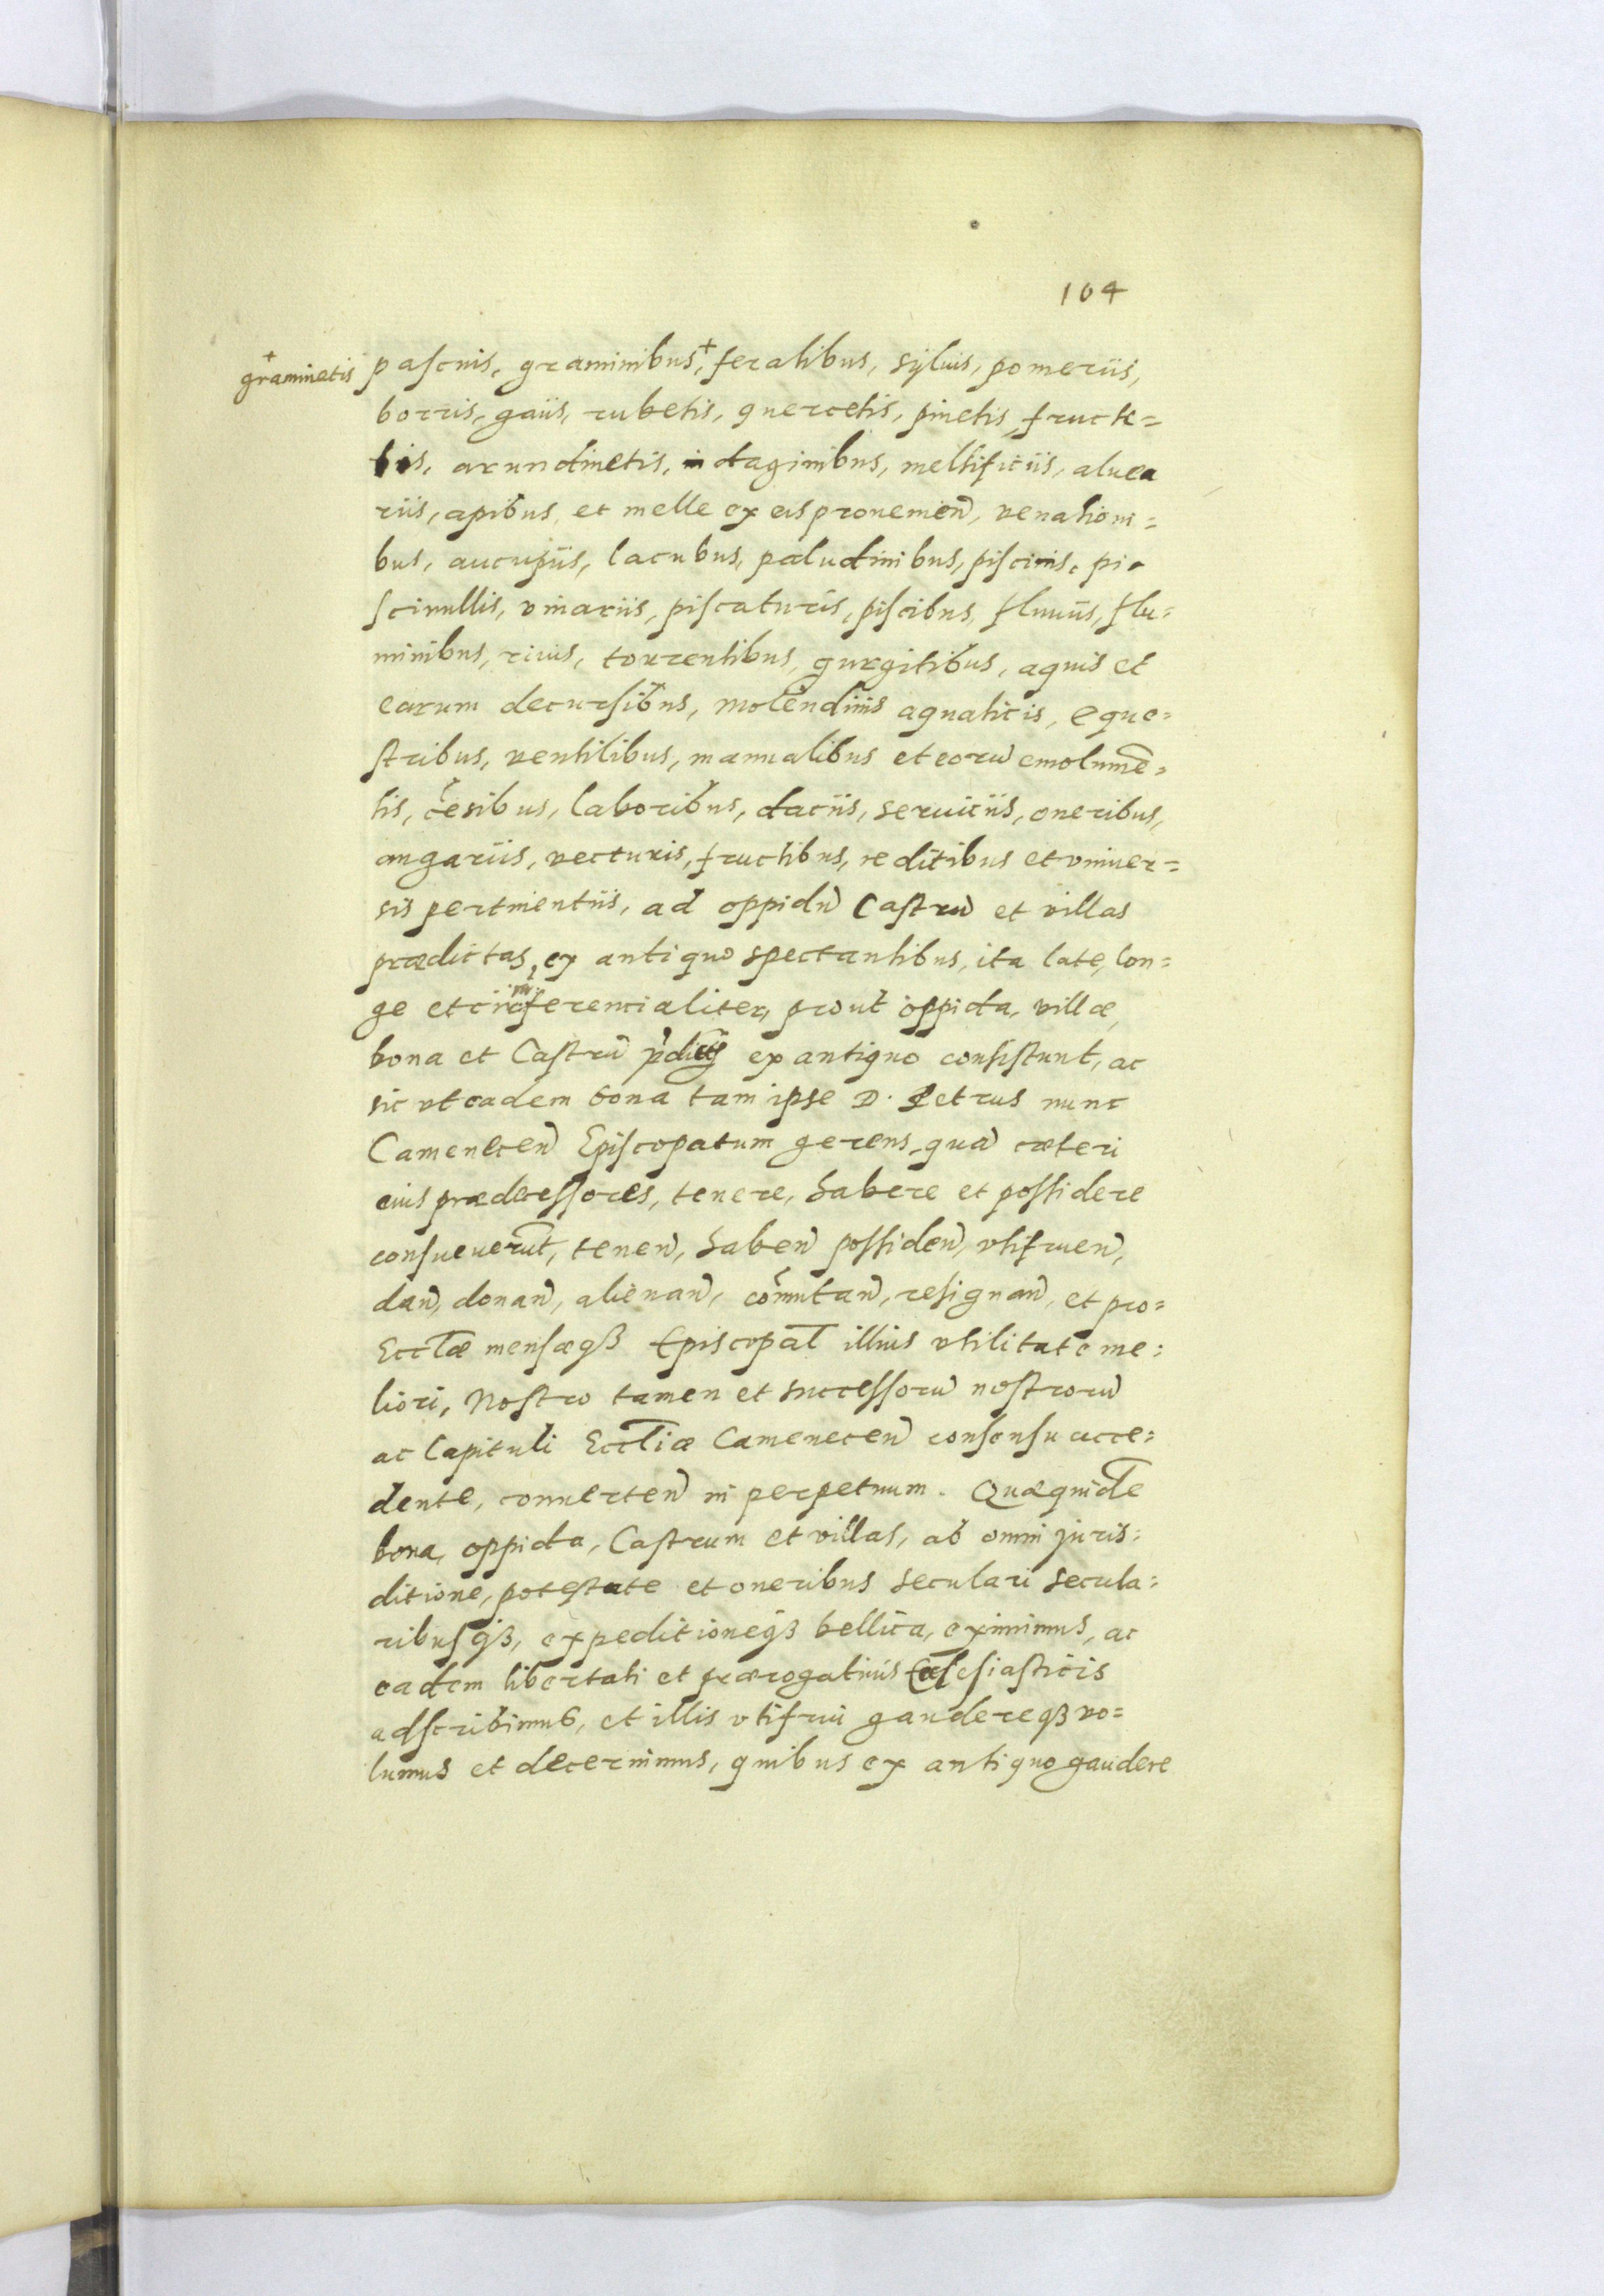 104
+
graminetis
pascuis, graminibus,+ feralibus, syluis, pomeriis,
borris, gaiis, rubetis, quercetis, pinetis, fructe=
tis, arundinetis, indaginibus, mellificiis, aluea
riis, apibus, et melle ex eis prouenien̄, venationi=
bus, aucupiis, lacubus, paludinibus, piscinis, pi-
scinullis, vinariis, piscaturis, piscibus, fluuiis, flu=
minibus, riuis, torrentibus, gurgitibus, aquis et
earum decursibus, molendinis aquaticis, eque=
stribus, ventilibus, manualibus et eorū emolumē=
tis, cēsibus, laboribus, daciis, seruitiis, oneribus,
angariis, vecturis, fructibus, reditibus et vniuer=
sis pertinentiis, ad oppidū Castrū et villas
prædictas, ex antiquo spectantibus, ita late, lon=
ge et circumferencialiter, prout oppida, villæ,
bona et Castrū pdict ex antiquo consistunt, ac
sic vt eadem bona tam ipse D. Petrus nunc
Camenecen̄ Episcopatum gerens, quā cæteri
eius prædecessores, tenere, habere et possidere
consueuerūt, tenen̄, haben̄ possiden̄, vtifruen̄,
dan̄, donan̄, alienan̄, cōmutan̄, resignan̄, et pro=
Eccl̄æ mensæqꝫ Episcopal̄ illius vtilitate me=
liori, Nostro tamen et successorū nostrorū
ac Capituli Eccl̄iæ Camenecen̄ consensu acce=
dente, conuerten̄ in perpetuum. Quæquidē
bona, oppida, Castrum et villas, ab omni juris=
ditione, potestate et oneribus seculari secula=
ribusqꝫ, expeditioneqꝫ bellica, eximimus, ac
eadem libertati et prærogatiuis Ecclesiasticis
adscribimus, et illis vtifrui gaudereqꝫ vo=
lumus et decernimus, quibus ex antiquo gaudere